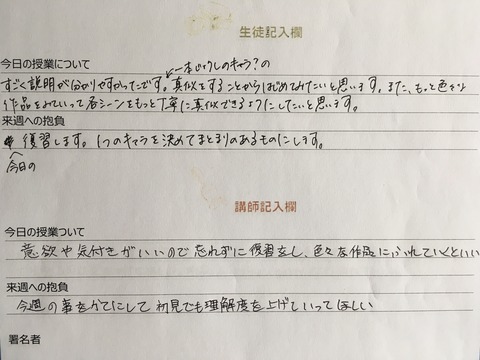 生徒記入欄
今日の授業について
すごく説明が分かりやすかったです。真似をすることからはじめてみたいと思います。また、もっと色々な
作品をみていって各シーンをもっと丁寧に真似できるようにしたいと思います。
来週への抱負
復習します。1つのキャラを決めてまとまりのあるものにします。
今日の
講師記入欄
今日の授業ついて
意欲や気付きがいいので忘れずに復習をし、色々な作品にふれていくといい
来週への抱負
今週の事をかてにして初見でも理解度を上げていってほしい
署名者